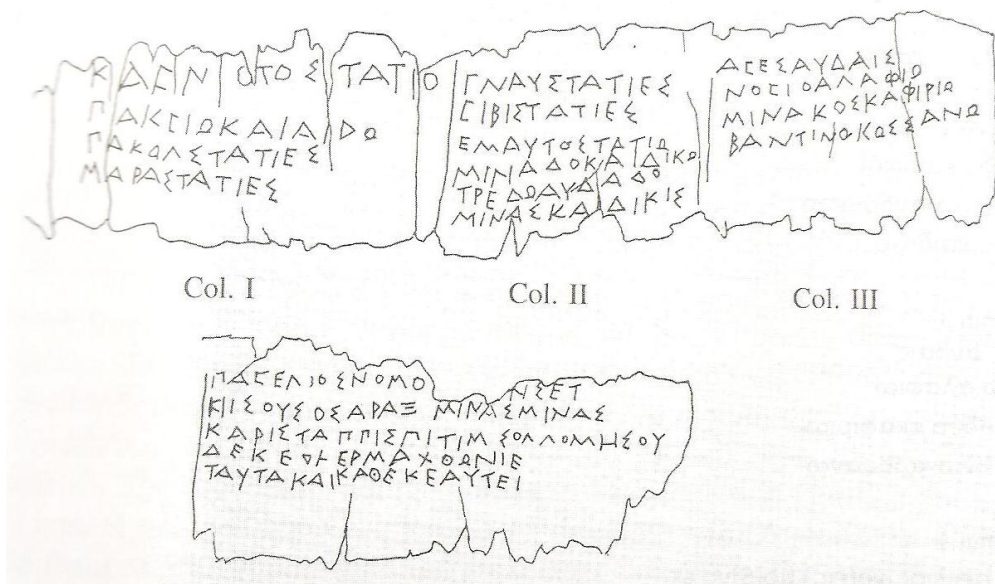 ΚΑϹΝΟΤΟΣ ΤΑΤΙΟ
ΠΑΚϹΙΩΚΑΙΑΔΩ
ΠΑΚΩΛΣΤΑΤΙΕΣ
ΜΑΡΑΣΤΑΤΙΕΣ
Col. I
ΓΝΑΥΣΤΑΤΙΕΣ
ϹΙΒΙΣΤΑΤΙΕΣ
ΕΜΑΥΤΟΣΤΑΤΙΩ
ΜΙΝΑΔΟΚΑΙΔΙΚΩ
ΤΡΕΔΩΑΥΔΑΔΟ
ΜΙΝΑΣΚΑΙΔΙΚΙΣ
Col. II
ΑϹΕΣΑΥΔΑΙΣ
ΝΟϹΙΟΑΛΑΦΙΩ
ΜΙΝΑΚΟΣΚΑΦΙΡΙΩ
ΒΑΝΤΙΝΟΚΩΣΣΑΝΩ
Col. III
ΠΑϹΕΛΙΟΣΝΟΜΟ ΝΣΕΤ
ΚΙΣΟΥΣΟΣΑΡΑΞ ΜΙΝΑΣΜΙΝΑΣ
ΚΑΡΙΣΤΑΠΠΙΣΠΙΤΙΜ ΣΟΛΛΟΜΗΣΟΥ
ΔΕΚΕΟΗΕΡΜΑΧΘΩΝΙΕ
ΤΑΥΤΑΚΑΙΚΑΘΕΚΕΑΥΤΕΙ